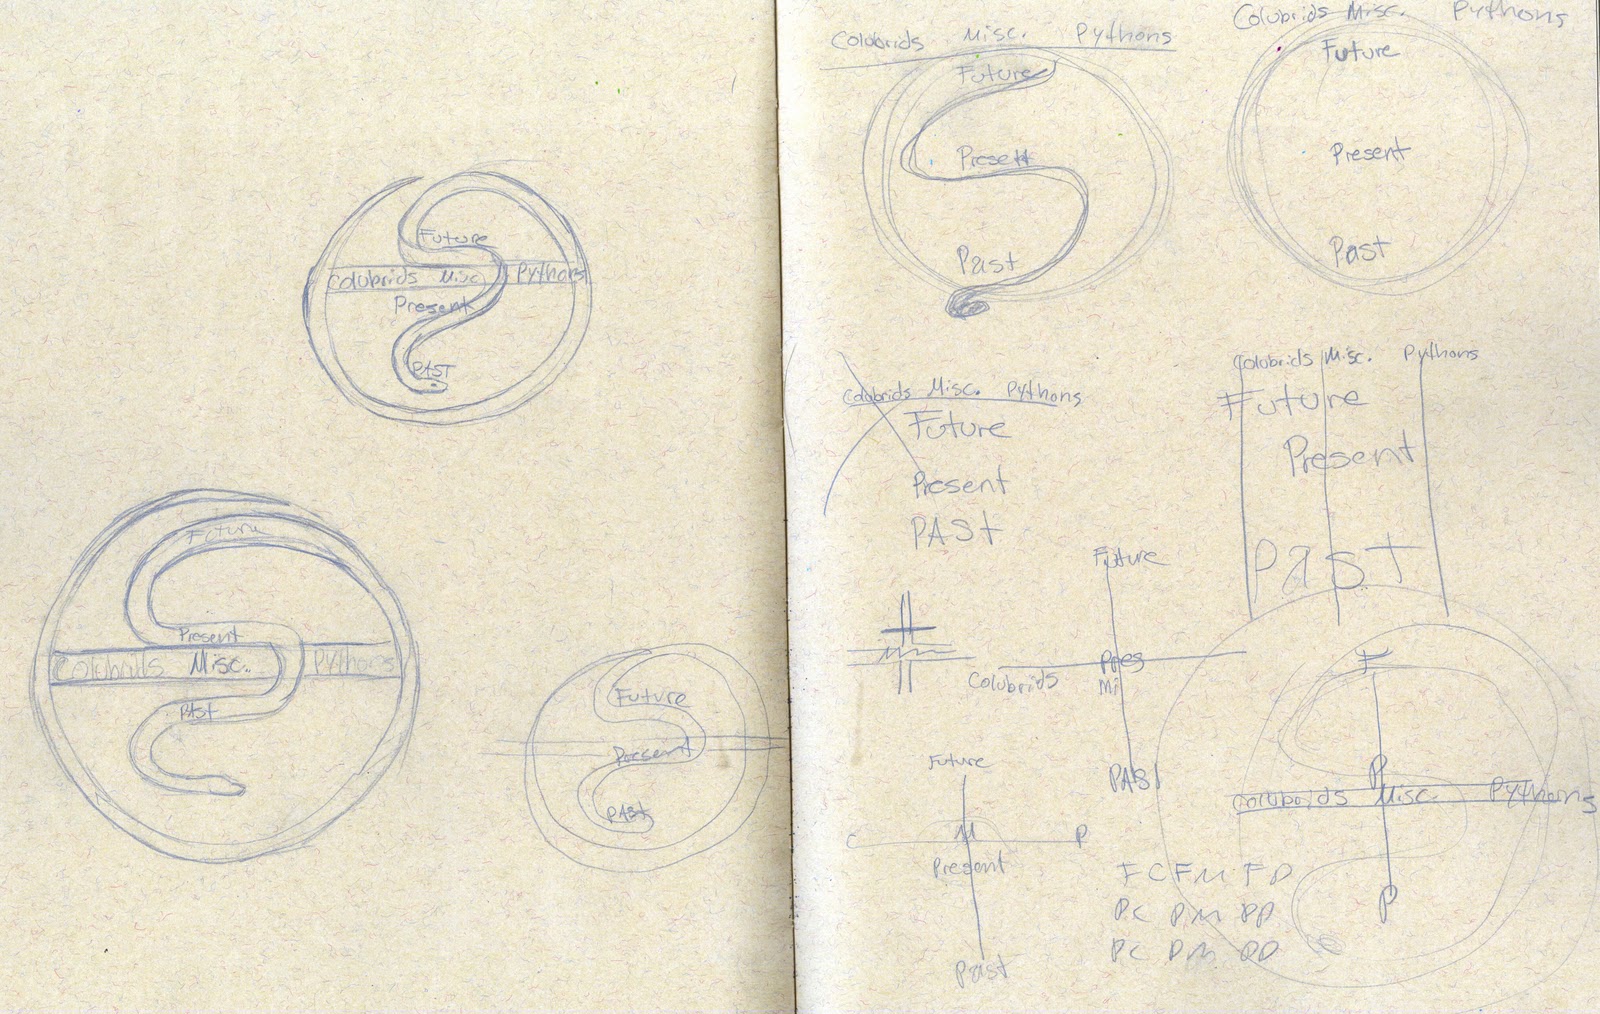 Future
Colubrids Misc. Pythons
Present
PAST
Future
Present
Colubrids Misc. Pythons
PAST
Future
Present
PAST
Colubrids Misc. Pythons
Future
Present
Past
Colubrids Misc. Pythons
Future
Present
Past
Colubrids Misc. Pythons
Future
Present
PAST
Colubrids Misc. Pythons
Future
Present
Past
Future
Pres
Colubrids Mi
PAST
Future
C M P
Present
Past
F
P
Colubrids Misc. Pythons
P
FC FM FP
PC PM PP
PC PM PP